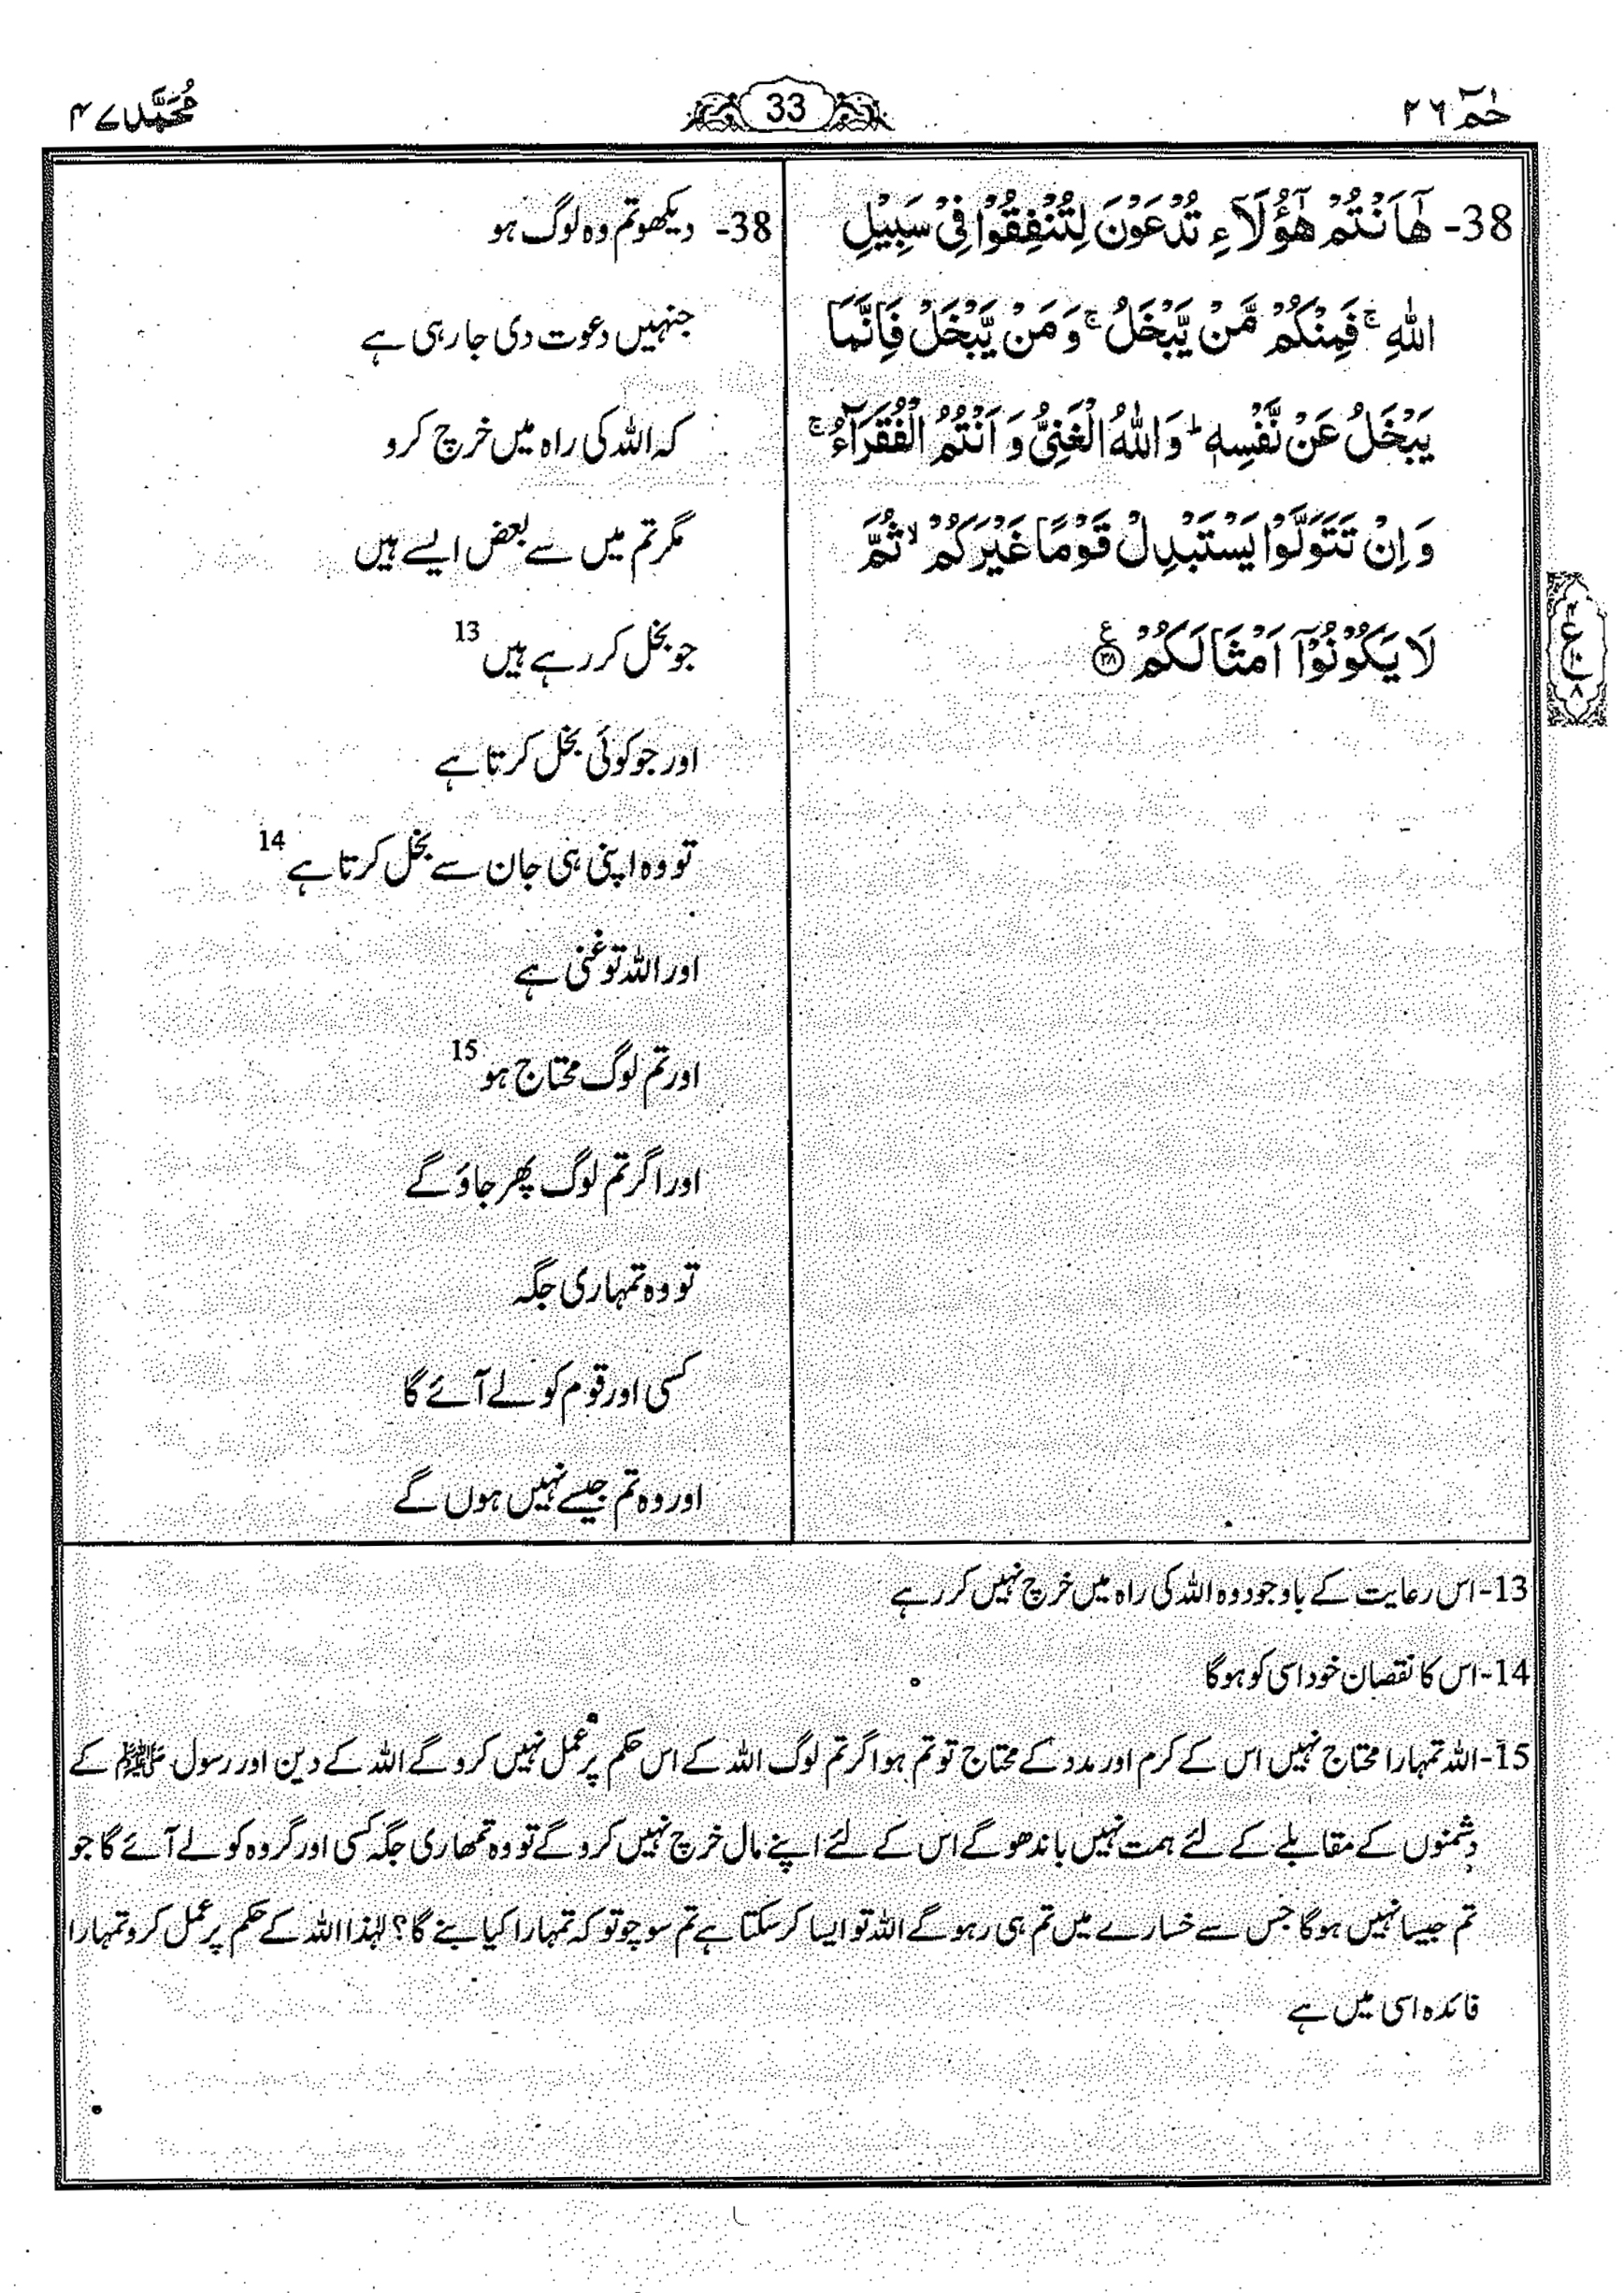 حٰمٓ ٢٦
33
مُحَمَّد ٤٧
38- هٰۤاَنْتُمْ هٰۤؤُلَآءِ تُدْعَوْنَ لِتُنْفِقُوْا فِیْ سَبِیْلِ
اللّٰهِ ۚ فَمِنْكُمْ مَّنْ یَّبْخَلُ ۚ وَ مَنْ یَّبْخَلْ فَاِنَّمَا
یَبْخَلُ عَنْ نَّفْسِهٖ ؕ وَ اللّٰهُ الْغَنِیُّ وَ اَنْتُمُ الْفُقَرَآءُ ۚ
وَ اِنْ تَتَوَلَّوْا یَسْتَبْدِلْ قَوْمًا غَیْرَكُمْ ۙ ثُمَّ
لَا یَكُوْنُوْۤا اَمْثَالَكُمْ ۠ ﴿۳۸﴾
38- دیکھو تم وہ لوگ ہو
جنہیں دعوت دی جا رہی ہے
کہ اللہ کی راہ میں خرچ کرو
مگر تم میں سے بعض ایسے ہیں
جو بخل کر رہے ہیں 13
اور جو کوئی بخل کرتا ہے
تو وہ اپنی ہی جان سے بخل کرتا ہے 14
اور اللہ تو غنی ہے
اور تم لوگ محتاج ہو 15
اور اگر تم لوگ پھر جاؤ گے
تو وہ تمہاری جگہ
کسی اور قوم کو لے آئے گا
اور وہ تم جیسے نہیں ہوں گے
13- اس رعایت کے باوجود وہ اللہ کی راہ میں خرچ نہیں کر رہے
14- اس کا نقصان خود اسی کو ہو گا
15- اللہ تمہارا محتاج نہیں اس کے کرم اور مدد کے محتاج تو تم ہو اگر تم لوگ اللہ کے اس حکم پر عمل نہیں کرو گے اللہ کے دین اور رسول ﷺ کے
دشمنوں کے مقابلے کے لئے ہمت نہیں باندھو گے اس کے لئے اپنے مال خرچ نہیں کرو گے تو وہ تمھاری جگہ کسی اور گروہ کو لے آئے گا جو
تم جیسا نہیں ہو گا جس سے خسارے میں تم ہی رہو گے اللہ تو ایسا کر سکتا ہے تم سوچو تو کہ تمہارا کیا بنے گا؟ لہٰذا اللہ کے حکم پر عمل کرو تمہارا
فائدہ اسی میں ہے